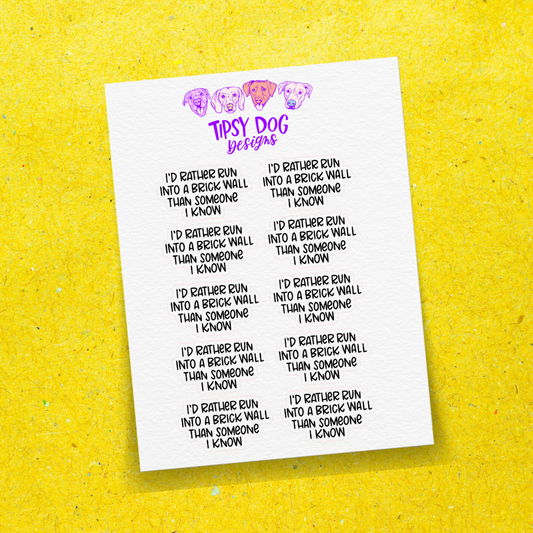 TIPSY DOG
Designs
I'D RATHER RUN
INTO A BRICK WALL
THAN SOMEONE
I KNOW
I'D RATHER RUN
INTO A BRICK WALL
THAN SOMEONE
I KNOW
I'D RATHER RUN
INTO A BRICK WALL
THAN SOMEONE
I KNOW
I'D RATHER RUN
INTO A BRICK WALL
THAN SOMEONE
I KNOW
I'D RATHER RUN
INTO A BRICK WALL
THAN SOMEONE
I KNOW
I'D RATHER RUN
INTO A BRICK WALL
THAN SOMEONE
I KNOW
I'D RATHER RUN
INTO A BRICK WALL
THAN SOMEONE
I KNOW
I'D RATHER RUN
INTO A BRICK WALL
THAN SOMEONE
I KNOW
I'D RATHER RUN
INTO A BRICK WALL
THAN SOMEONE
I KNOW
I'D RATHER RUN
INTO A BRICK WALL
THAN SOMEONE
I KNOW